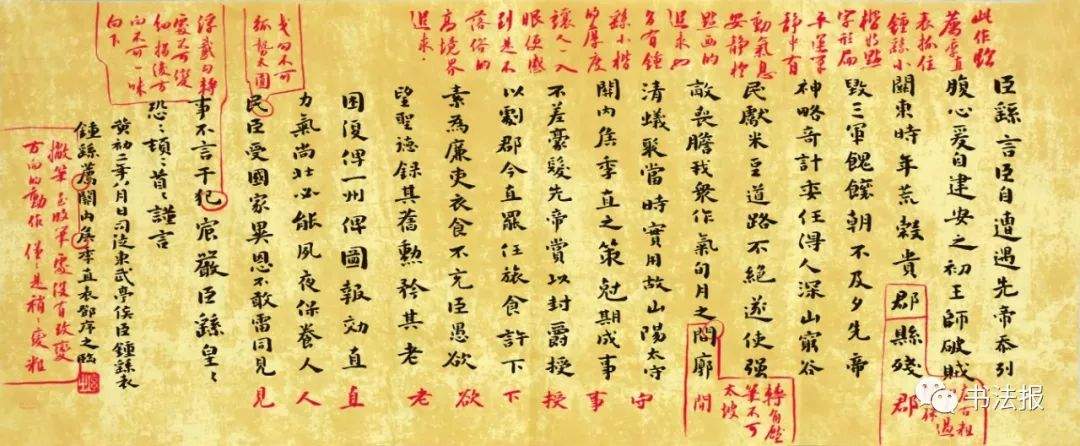 此作臨
薦季直
表抓住
鍾繇小
楷的點
字形局
靜中有
動氣息
安靜於
點画的
追求
方有鍾
繇小楷
的厚度
讓人一入
眼便感
到是不
落俗的
高境界
追求。
臣繇言臣自遭遇先帝忝列
腹心爰自建安之初王師破賊
關東時年荒穀貴郡縣殘
毀三軍餽饟朝不及夕先帝
神略奇計委任得人深山窮谷
民獻米豆道路不絕遂使強
敵喪膽我衆作氣旬月之間廓
清蟻聚當時實用故山陽太守
關內侯季直之策尅期成事
不差豪髮先帝賞以封爵授
以劇郡今直罷任旅食許下
素為廉吏衣食不充臣愚欲
望聖德錄其舊勳矜其老
困復俾一州俾圖報効直
力氣尚壯必能夙夜保養人
民臣受國家異恩不敢雷同見
事不言干犯宸嚴臣繇皇:
恐:頓:首:謹言
黃初二年八月日司徒東武亭侯臣鍾繇表
鍾繇薦關內侯季直表鄧序之臨
郡 間 守 事 授 下 欲 老 直 人 見
轉角
筆不可
太坡
戈勾不可
弧勢太圓
浮戴勾轉
處不可變
細描後方
向不可一味
向下
撇筆至收筆處沒有改變
方向的動作 僅:是稍:變粗
书法报